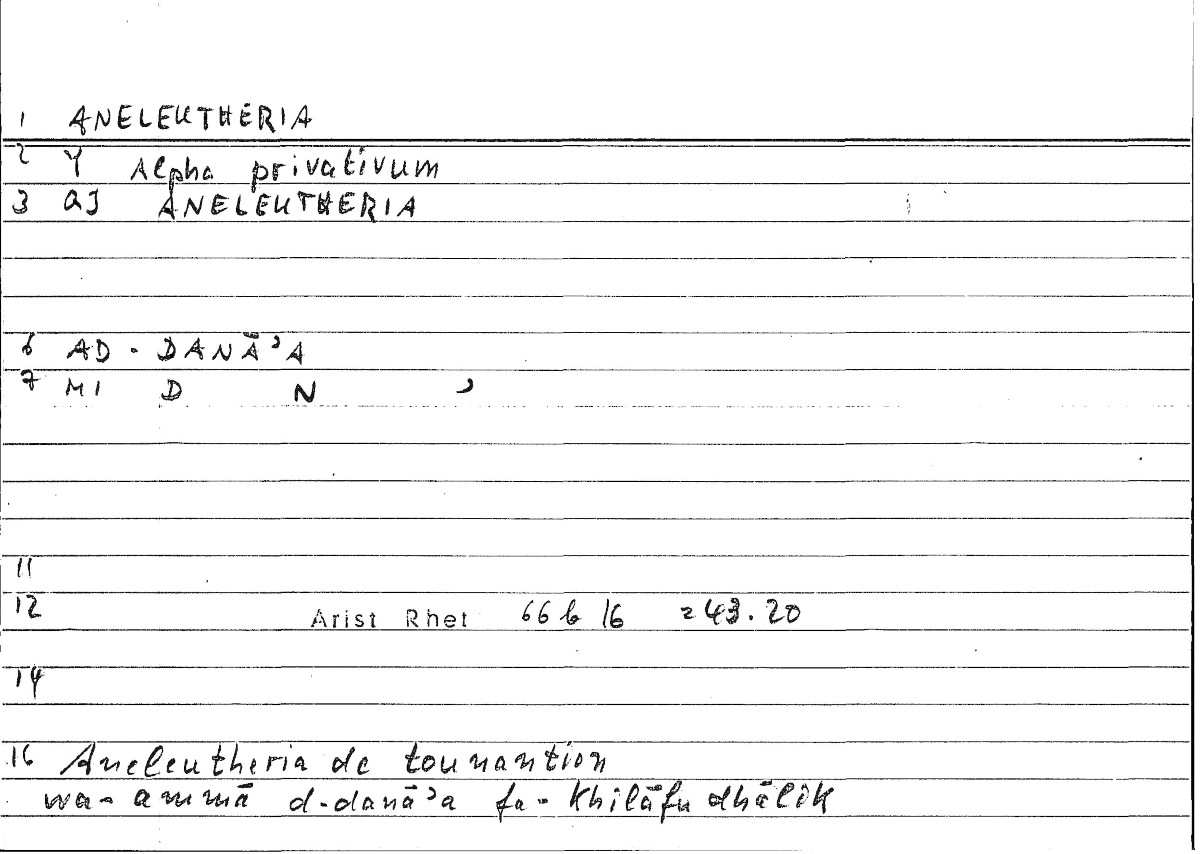 1 ANELEUTHERIA
2 Y Alpha privativum
3 QJ ANELEUTHERIA
6 AD-DANĀʾA
7 MI D N ʾ
11
12 Arist Rhet 66 b 16 = 43.20
14
16 Aneleutheria de tounantion
wa-ammā d-danāʾa fa-khilāfu dhālik